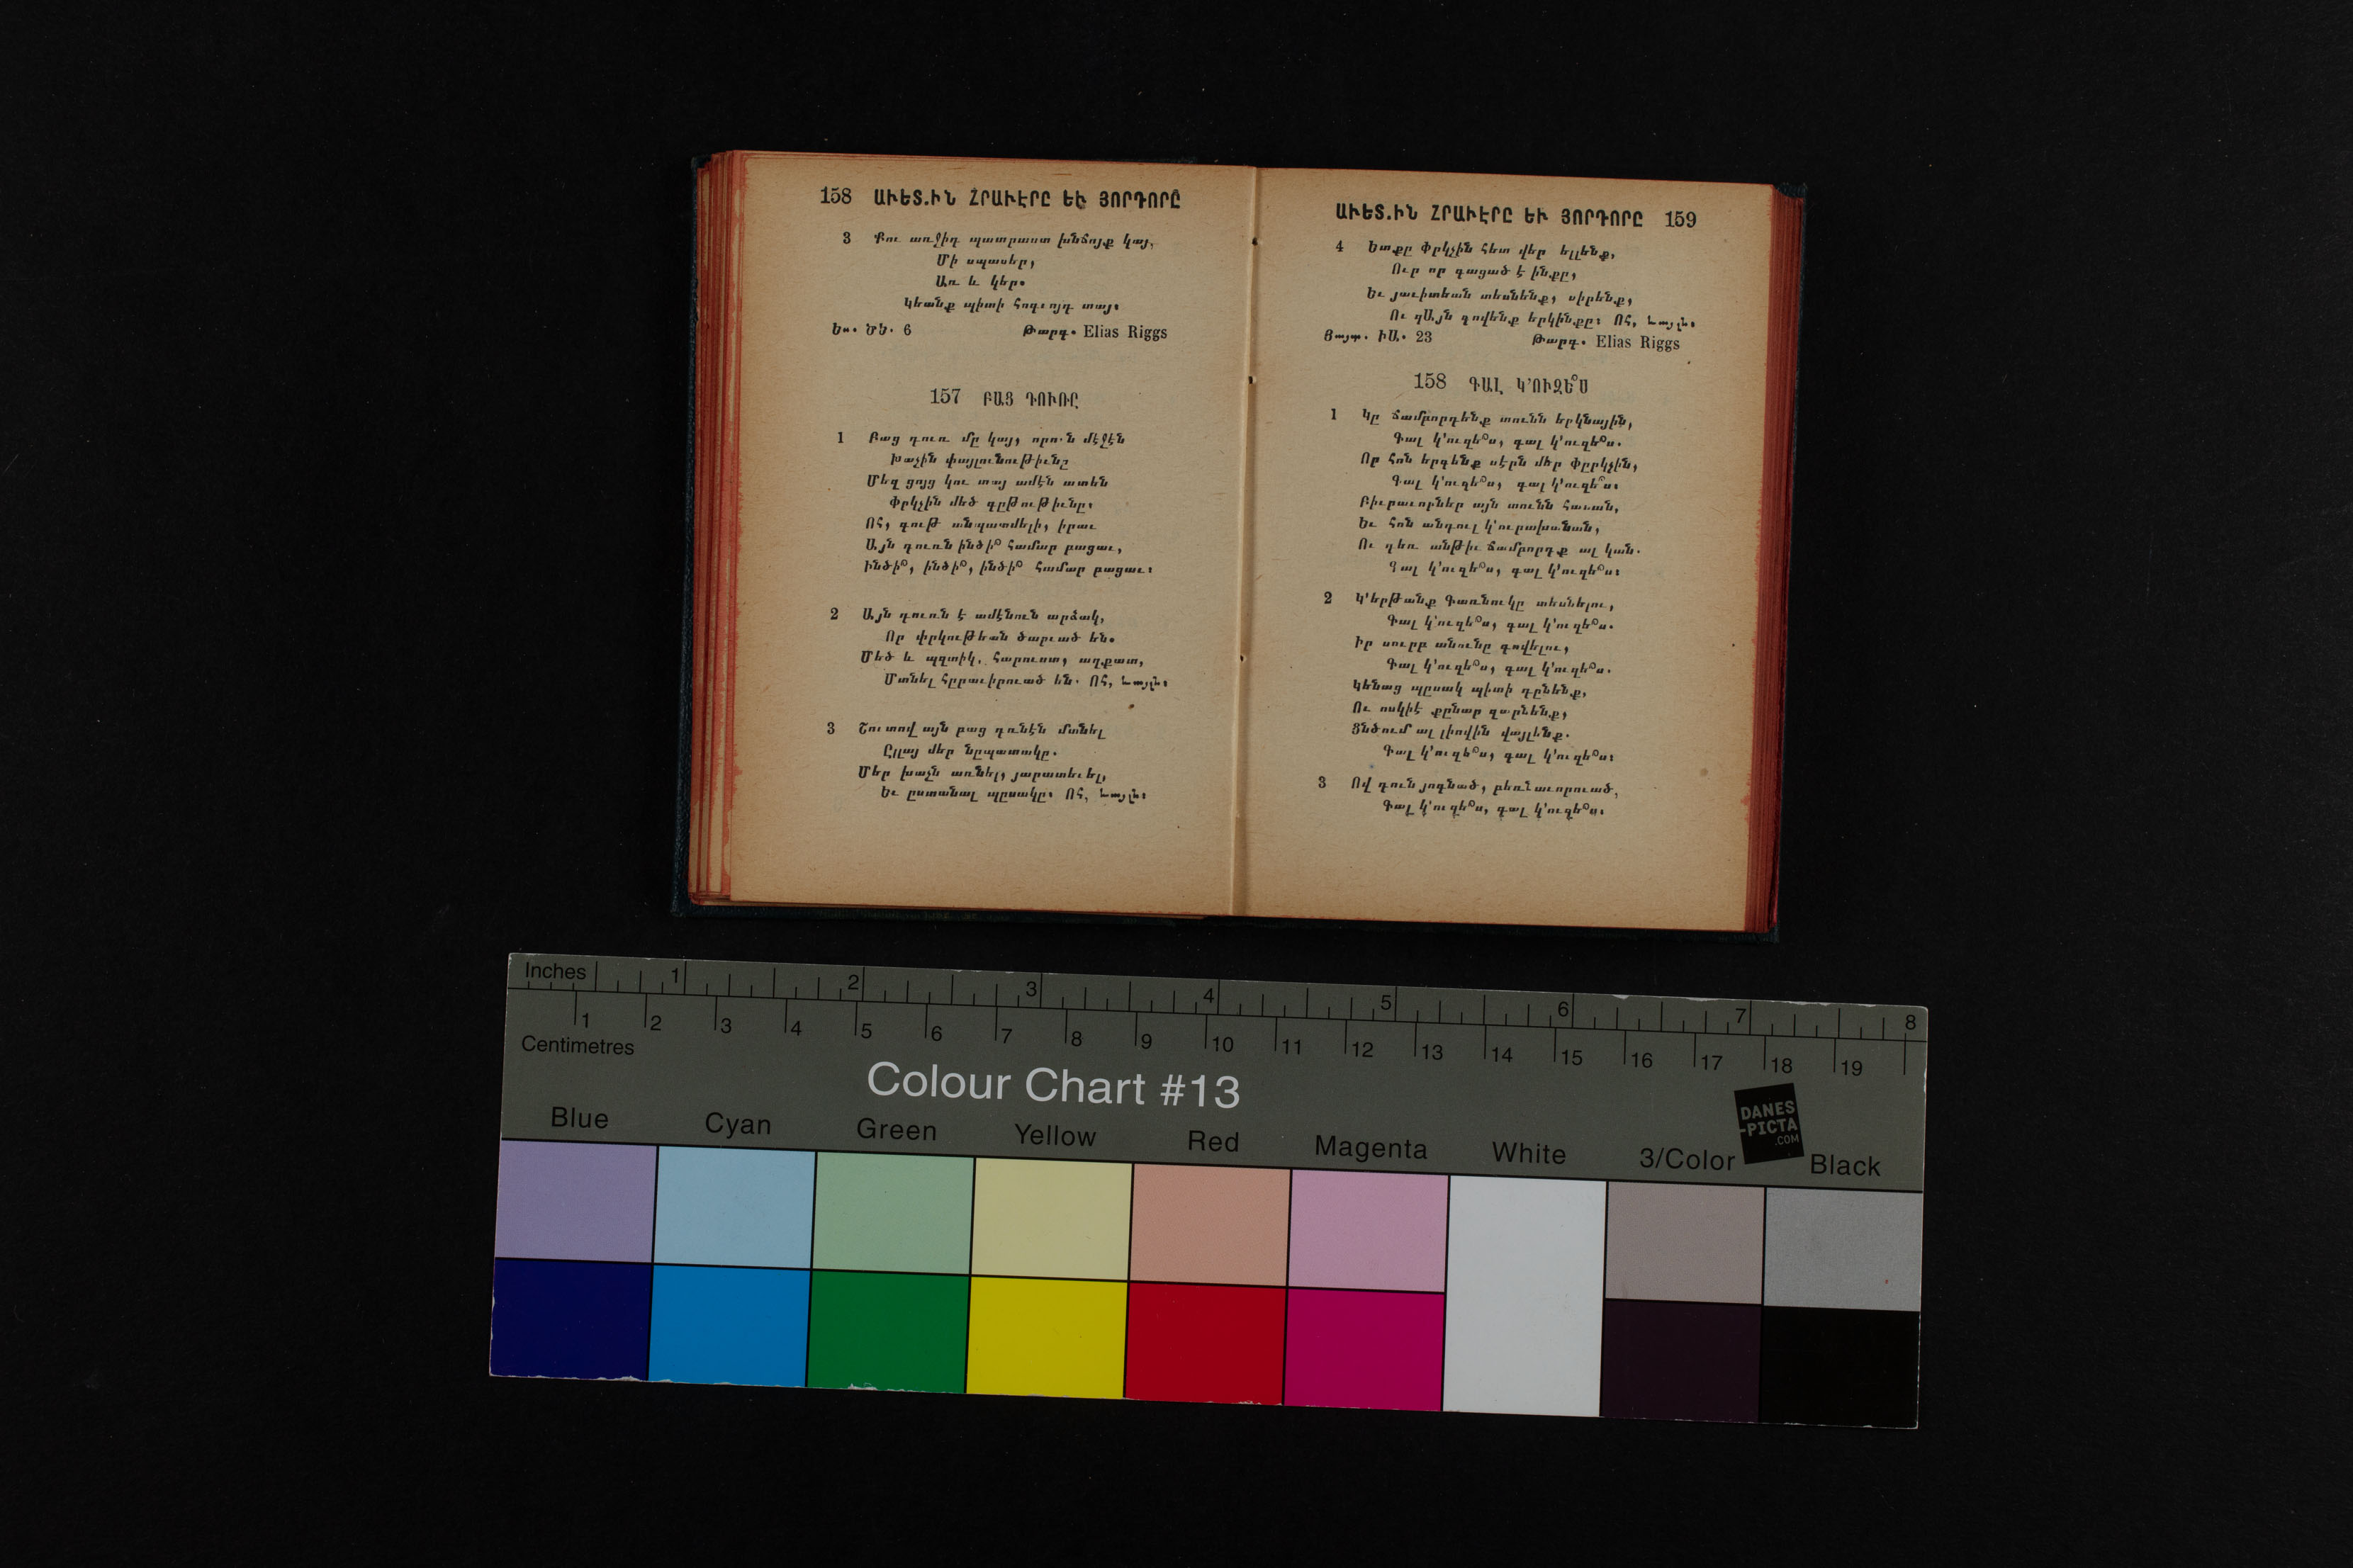 158 ԱՒԵՏ.ԻՆ ՀՐԱՒԷՐԸ ԵՒ ՅՈՐԴՈՐԸ
3 Քու առջիդ պատրաստ խնճոյք կայ,
Մի սպասեր,
Առ և կեր.
Կեանք պիտի հոգւոյդ տայ։
Ես. ԾԵ. 6 Թարգ. Elias Riggs
157 ԲԱՑ ԴՈՒՌԸ
1 Բաց դուռ մը կայ, որո՛ն մէջէն
Խաչին փայլունութիւնը
Մեզ ցոյց կու տայ ամէն ատեն
Փրկչին մեծ գըթութիւնը։
Ո՜հ, գութ անպատմելի, իրաւ
Այն դուռն ինծի՞ համար բացաւ,
Ինծի՞, ինծի՞, ինծի՞ համար բացաւ։
2 Այն դուռն է ամէնուն արձակ,
Որ փրկութեան ծարաւած են.
Մեծ և պզտիկ, հարուստ, աղքատ,
Մտնել հըրաւիրուած են. Ոհ, Նայլն։
3 Շուտով այն բաց դռնէն մտնել
Ըլլայ մեր նըպատակը.
Մեր խաչն առնել, յարատեւել,
Եւ ըստանալ պըսակը։ Ոհ, Նայլն։
ԱՒԵՏ.ԻՆ ՀՐԱՒԷՐԸ ԵՒ ՅՈՐԴՈՐԸ 159
4 Ետքը Փրկչին հետ վեր ելլենք,
Ուր որ գացած է ինքը,
Եւ յաւիտեան տեսնենք, սիրենք,
Ու զԱյն գովենք երկինքը։ Ոհ, Նայլն։
Յայտ. ԻԱ. 23 Թարգ. Elias Riggs
158 ԳԱԼ Կ՚ՈՒԶԵ՞Ս
1 Կը ճամբորդենք տունն երկնային,
Գալ կ՚ուզե՞ս, գալ կ՚ուզե՞ս.
Որ հոն երգենք սէրն մեր Փըրկչին,
Գալ կ՚ուզե՞ս, գալ կ՚ուզե՞ս։
Բիւրաւորներ այն տունն հասան,
Եւ հոն անդուլ կ՚ուրախանան,
Ու դեռ անթիւ ճամբորդք ալ կան.
Գալ կ՚ուզե՞ս, գալ կ՚ուզե՞ս։
2 Կ՚երթանք Գառնուկը տեսնելու,
Գալ կ՚ուզե՞ս, գալ կ՚ուզե՞ս.
Իր սուրբ անունը գովելու,
Գալ կ՚ուզե՞ս, գալ կ՚ուզե՞ս.
Կենաց պըսակ պիտի դընենք,
Ու ոսկիէ քընար զարնենք,
Ցնծում ալ լիովին վայլենք.
Գալ կ՚ուզե՞ս, գալ կ՚ուզե՞ս։
3 Ով դուն յոգնած, բեռնաւորուած,
Գալ կ՚ուզե՞ս, գալ կ՚ուզե՞ս.
Inches 1 2 3 4 5 6 7 8
1 2 3 4 5 6 7 8 9 10 11 12 13 14 15 16 17 18 19
Centimetres
Colour Chart #13
DANES
-PICTA
.COM
Blue Cyan Green Yellow Red Magenta White 3/Color Black